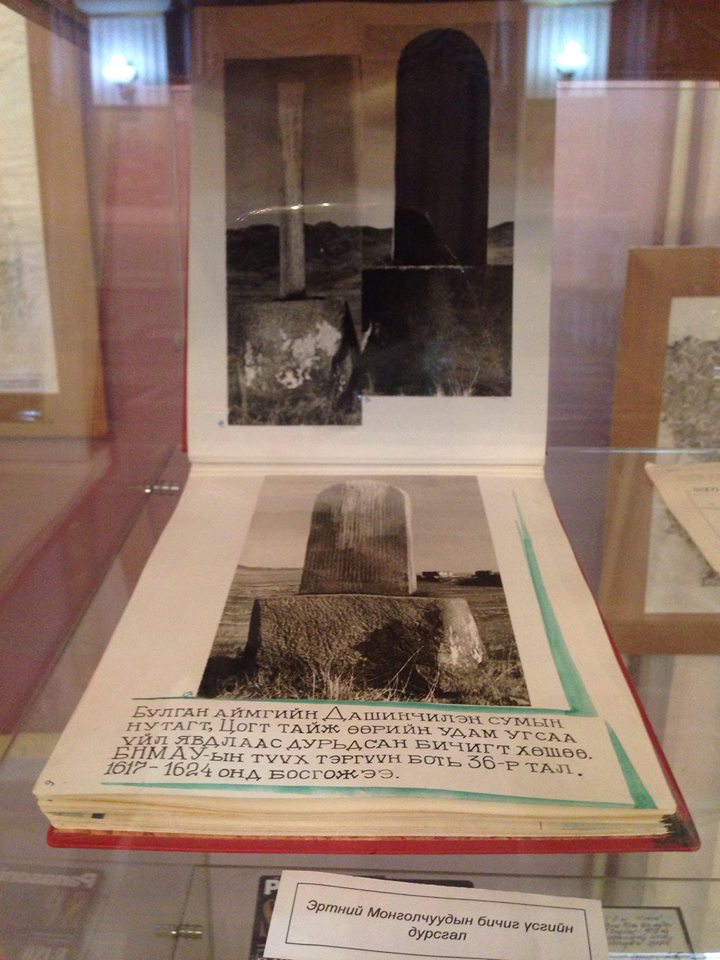 Булган аймгийн Дашинчилэн сумын
нутагт, Цогт тайж өөрийн удам угсаа
үйл явдлаас дурьдсан бичигт хөшөө.
БНМАУ-ын түүх тэргүүн боть 36-р тал.
1617-1624 онд босгожээ.
Эртний Монголчуудын бичиг үсгийн
дурсгал